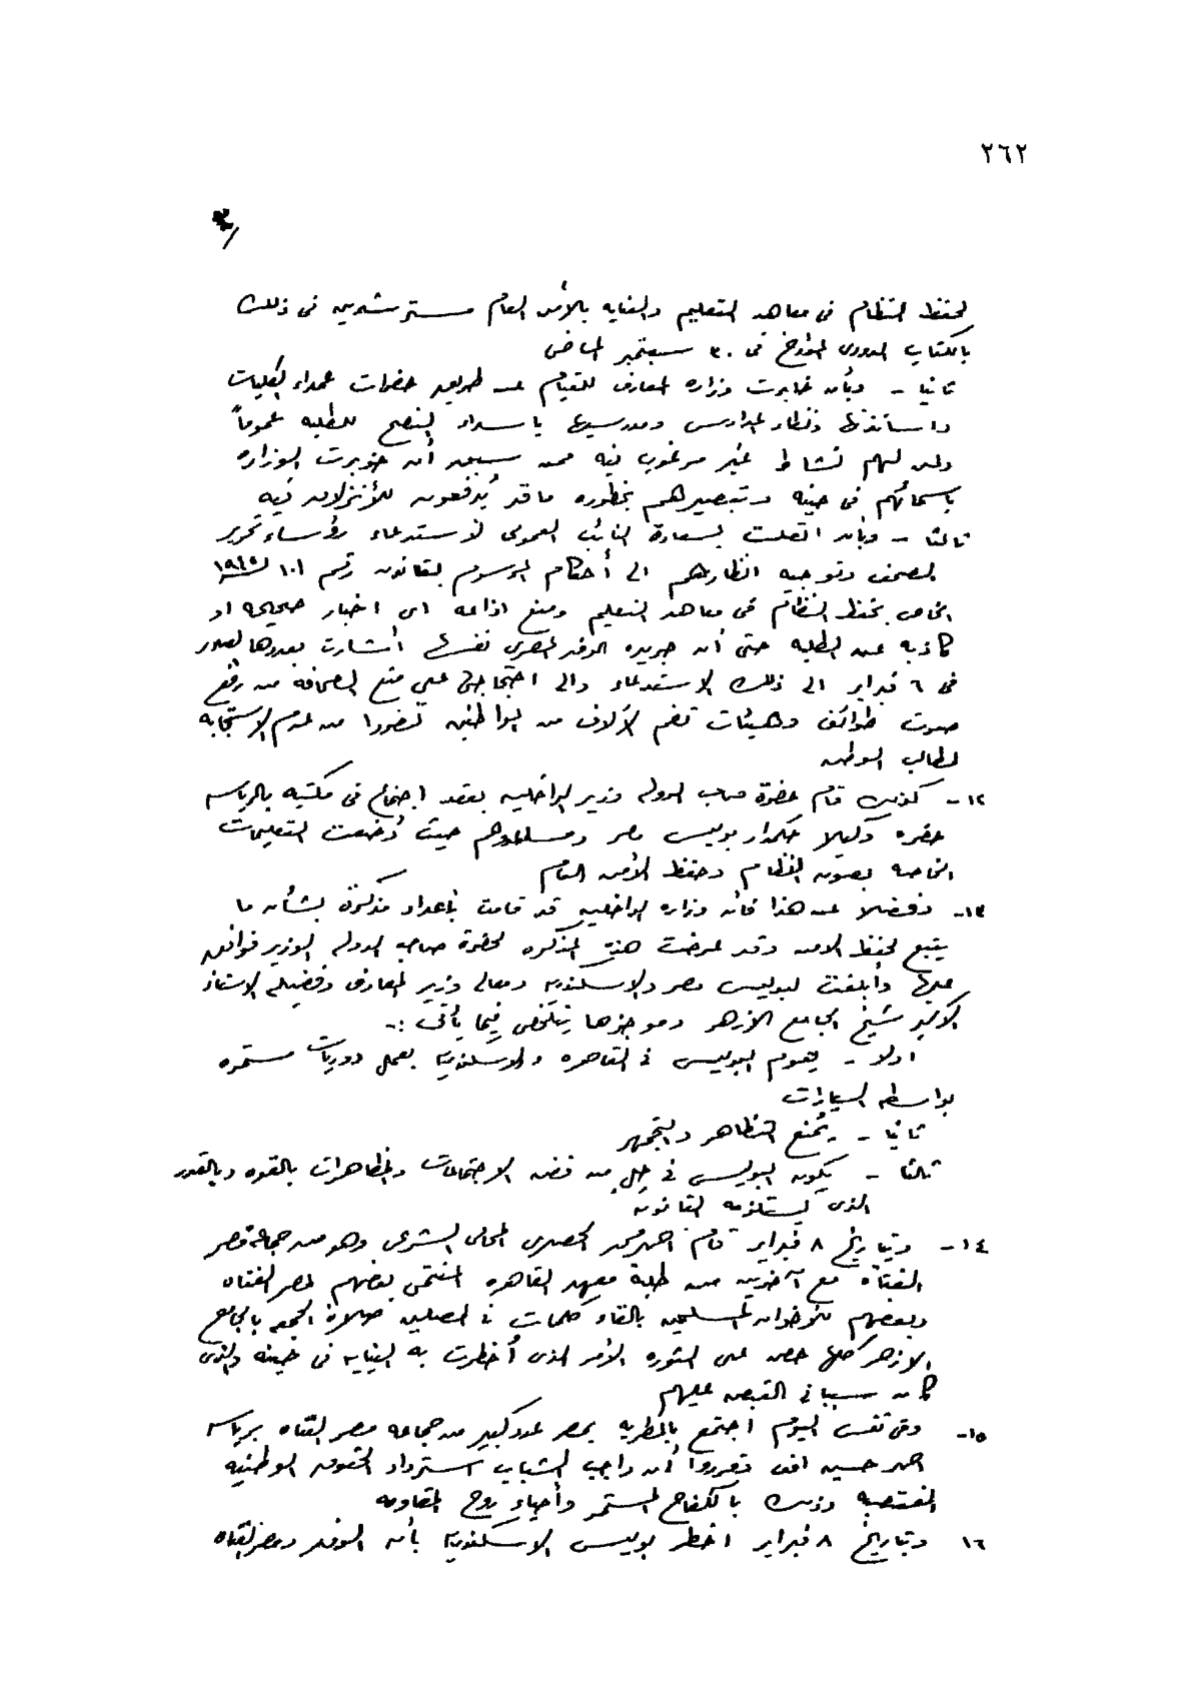 ٢٦٢
لحفظ النظام فى معاهد التعليم والعنايه بالأمن العام مسترشدين فى ذلك
بالكتاب الدورى المؤرخ فى ٣٠ سبتمبر الماضى
ثانيا - وبأن خابرت وزاره المعارف للقيام عن طريق حضرات عمداء الكليات
واساتذتها ونظار المدارس ومدرسيها باسداء النصح للطلبه عموماً
ولمن لهم نشاط غير مرغوب فيه ممن سبق أن خوبرت الوزاره
باسمائهم فى حينه وتبصيرهم بخطوره ما قد يُدفعون للأنزلاق فيه
ثالثا - وبأن اتصلت بسعادة النائب العمومى لاستدعاء رؤساء تحرير
الصحف وتوجيه انظارهم الى أحكام المرسوم بقانون رقم ١٠١ لسنة
الخاص بحفظ النظام فى معاهد التعليم ومنع اذاعه اى اخبار صحيحه او
كاذبه عن الطلبه حتى أن جريده الوفد المصرى نفسها أشارت بعددها الصادر
فى ٦ فبراير الى ذلك الاستدعاء والى احتجاجها على منع الصحافه من رفع
صوت طوائف وهيئات تضم الآلاف من المواطنين تضوروا من عدم الاستجابه
لمطالب الوطن
١٢- كذلك قام حضرة صاحب الدوله وزير الداخليه بعقد اجتماع فى مكتبه بالرياسه
حضره وكيلا حكمدار بوليس مصر ومساعدوهم حيث أُوضحت التعليمات
الخاصه بصون النظام وحفظ الأمن العام
١٣- وفضلا عن هذا فان وزاره الداخليه قد قامت بأعداد مذكرة بشأن ما
يتبع لحفظ الامن وقد عرضت هذه المذكره لحضرة صاحب الدوله الوزير فوافق
عليها وأبلغت لبوليس مصر والاسكندريه ومعالى وزير المعارف وفضيله الاستاذ
الاكبر شيخ الجامع الازهر وموجزها يتلخص فيما يأتى :-
اولا - يقوم البوليس فى القاهره والاسكندريه بعمل دوريات مستمره
بواسطه السيارات
ثانيا - يُمنع التظاهر والتجمهر
ثالثا - يكون البوليس فى حِل من فض الاجتماعات والمظاهرات بالقوه وبالقدر
الذى يستلزمه القانون
١٤- وبتاريخ ٨ فبراير قام احمد محمد الحصرى المحامى الشرعى وهو من جماعة مصر
الفتاة مع آخرين من طلبة معهد القاهره المنتمى بعضهم لمصر الفتاه
وبعضهم للاخوان المسلمين بالقاء كلمات فى المصلين صلاة الجمعه بالجامع
الازهر كلها حض على الثوره الأمر الذى أُخطرت به النيابه فى حينه والذى
كان سببا فى القبض عليهم
١٥- وفى نفس اليوم اجتمع بالمطريه بمصر عدد كبير من جماعه مصر الفتاه برياسه
احمد حسين افندى وقرروا أن واجب الشباب استرداد الحقوق الوطنيه
المغتصبه وذلك بالكفاح المستمر وأحياء روح المقاومه
١٦ وبتاريخ ٨ فبراير اخطر بوليس الاسكندريه بأن الوفد ومصر الفتاه